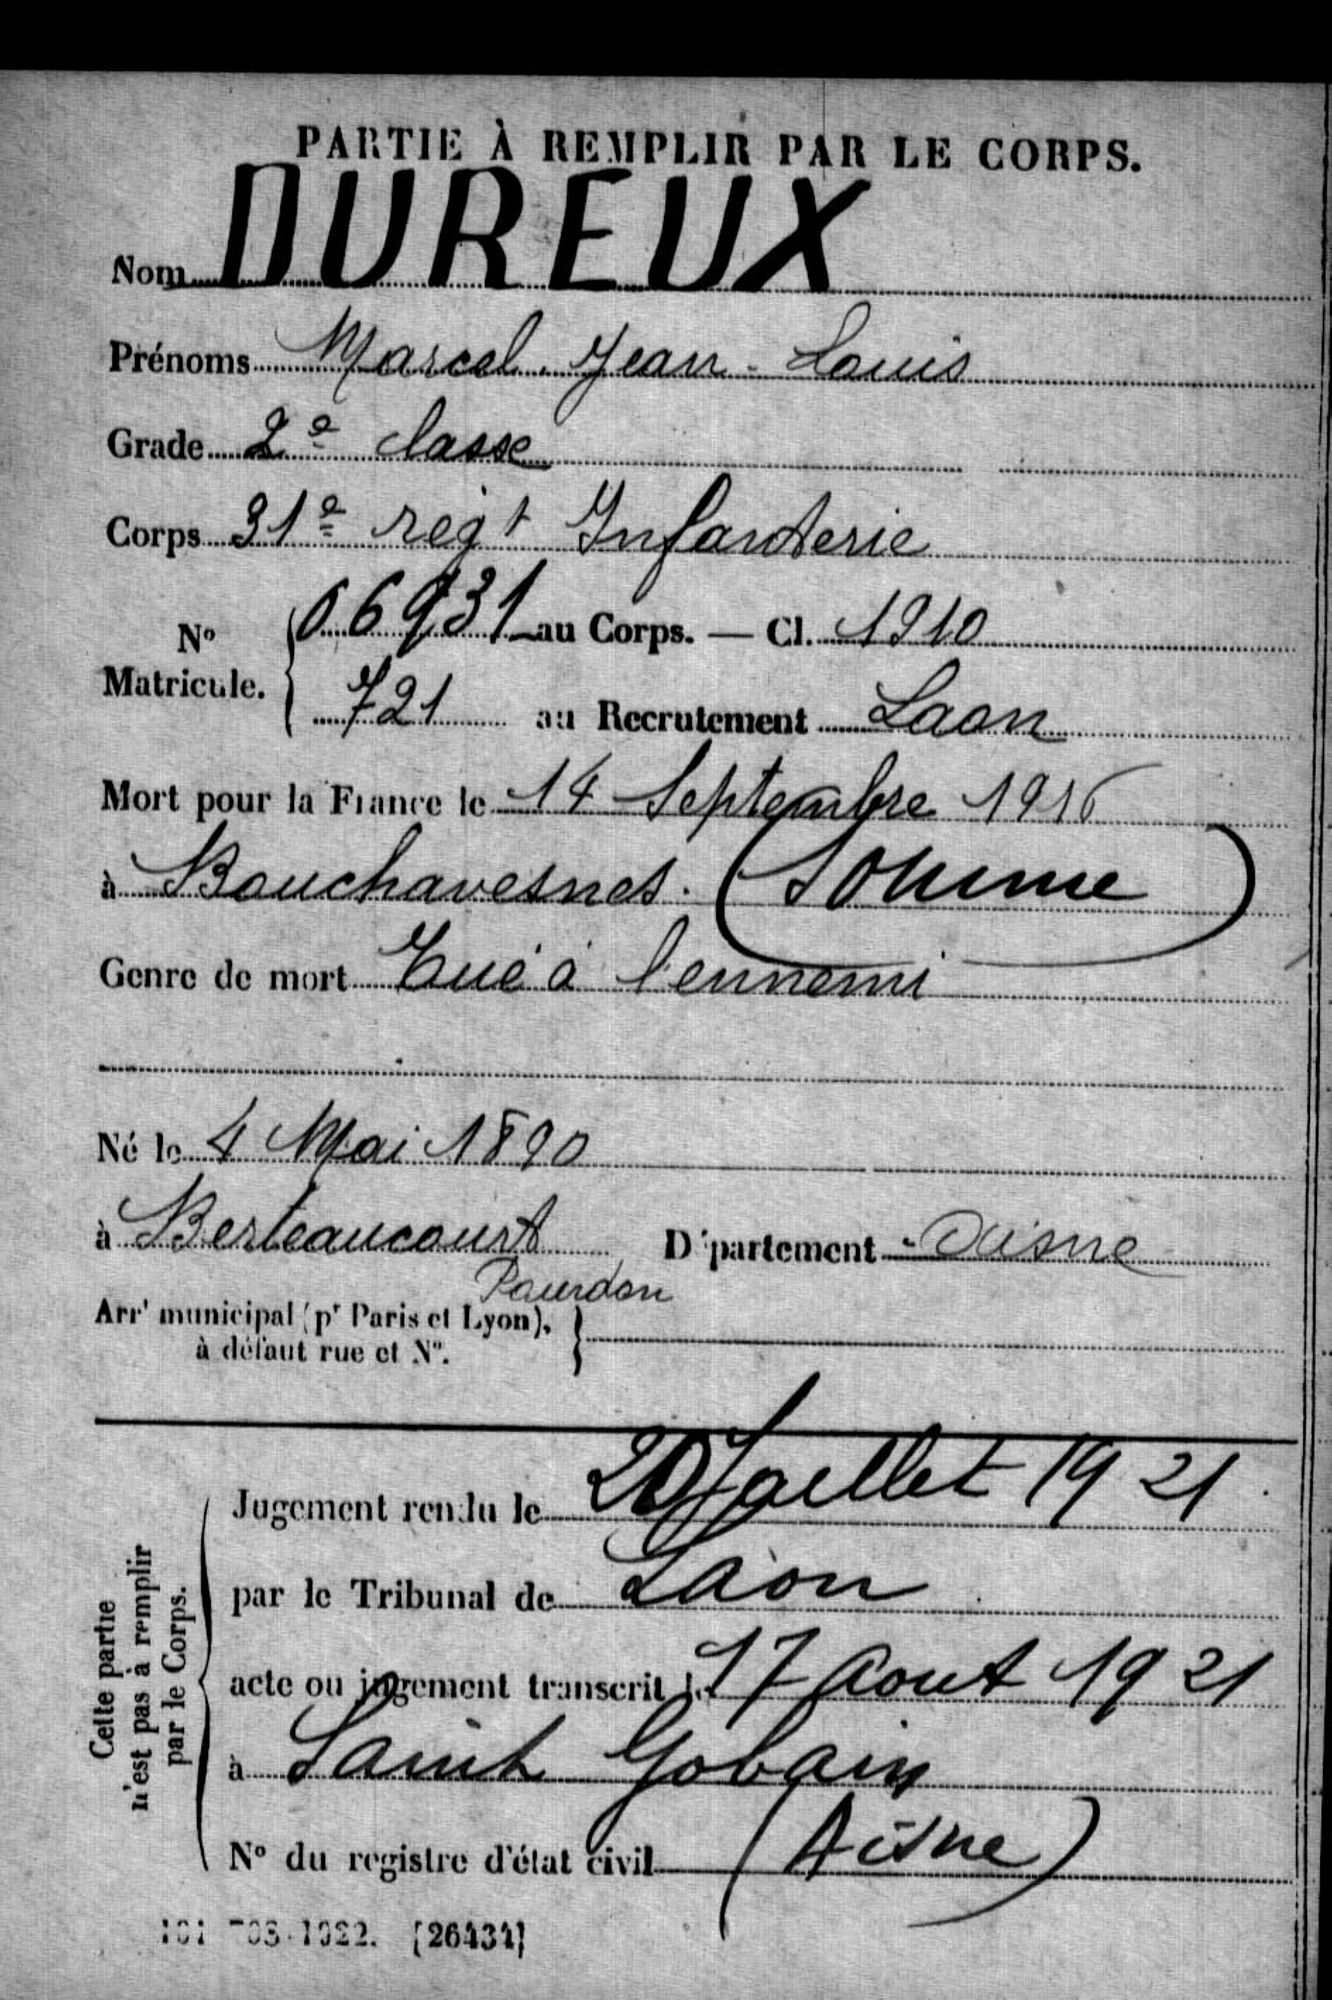 PARTIE À REMPLIR PAR LE CORPS.
Nom DUREUX
Prénoms Marcel. Jean - Louis
Grade 2e classe
Corps 31e regt Infanterie
No Matricule. 06931 au Corps. — Cl. 1910
721 au Recrutement Laon
Mort pour la France le 14 Septembre 1916
à Bouchavesnes. (Somme)
Genre de mort Tué à l'ennemi
Né le 4 Mai 1890
à Berteaucourt Département Aisne
Arrt municipal (pr Paris et Lyon),
à défaut rue et No.
Jugement rendu le 20 Juillet 1921
par le Tribunal de Laon
acte ou jugement transcrit le 17 Aout 1921
à Saint Gobain
No du registre d'état civil (Aisne)
Cette partie
n'est pas à remplir
par le Corps.
1922. [26434]